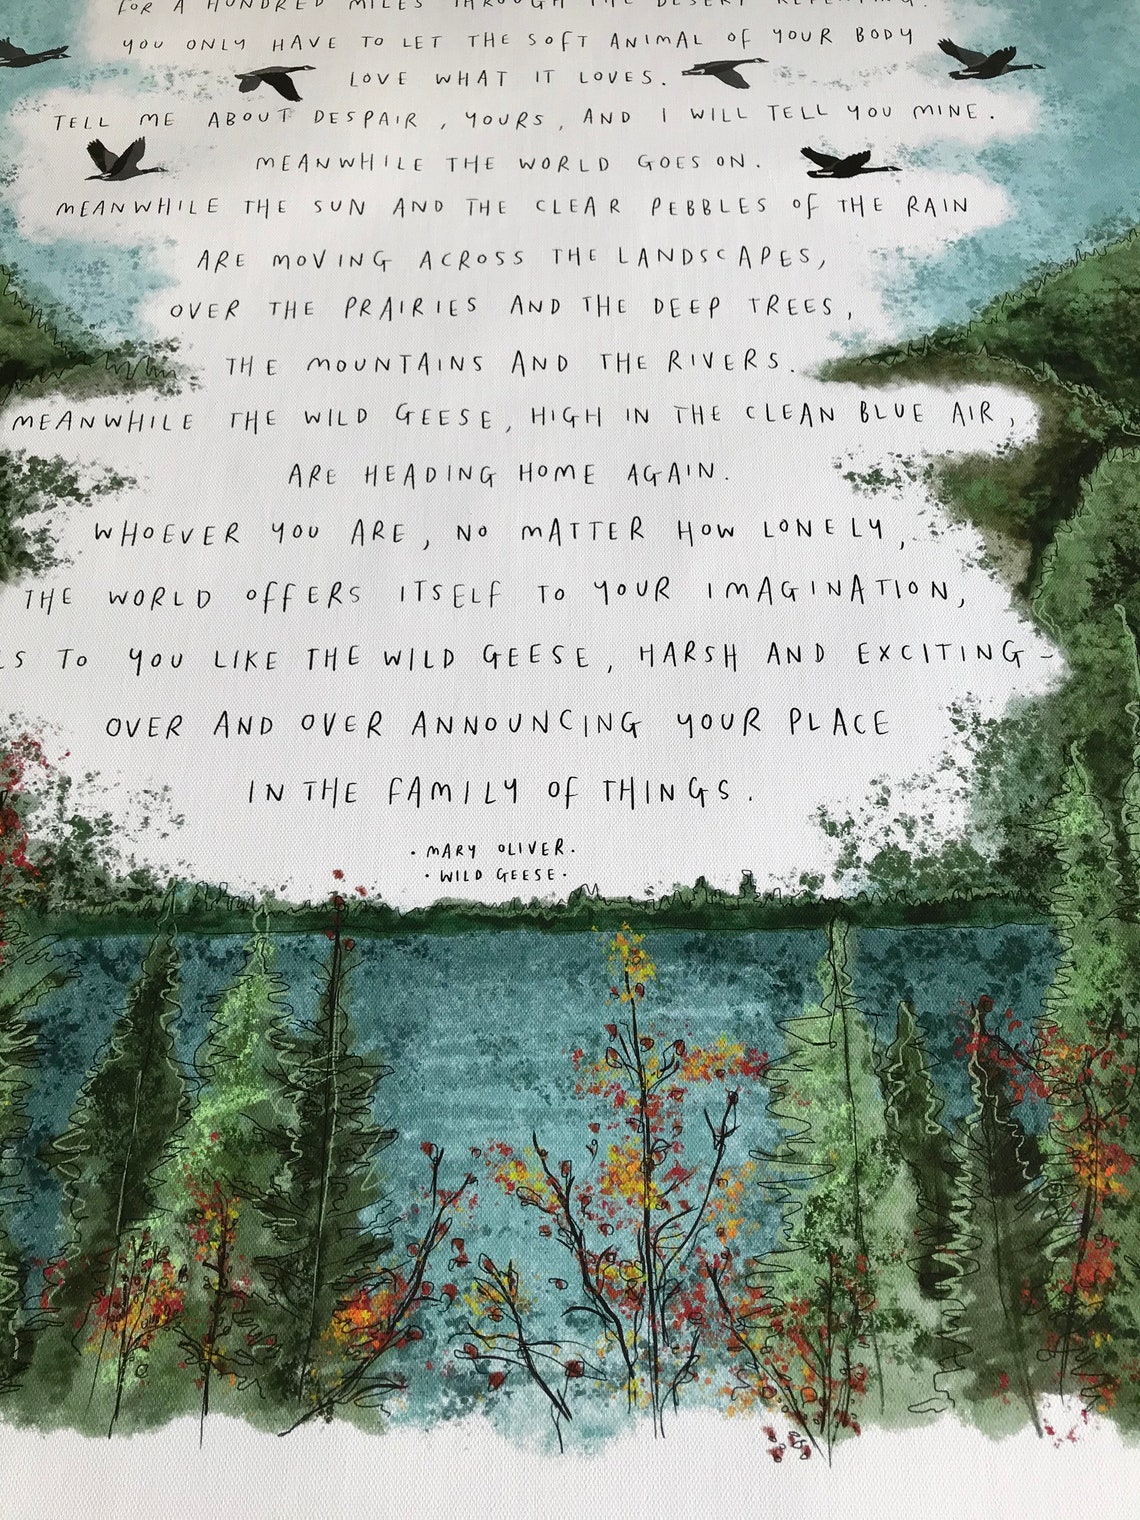 FOR A HUNDRED MILES THROUGH THE DESERT REPENTING.
YOU ONLY HAVE TO LET THE SOFT ANIMAL OF YOUR BODY
LOVE WHAT IT LOVES.
TELL ME ABOUT DESPAIR, YOURS, AND I WILL TELL YOU MINE.
MEANWHILE THE WORLD GOES ON.
MEANWHILE THE SUN AND THE CLEAR PEBBLES OF THE RAIN
ARE MOVING ACROSS THE LANDSCAPES,
OVER THE PRAIRIES AND THE DEEP TREES,
THE MOUNTAINS AND THE RIVERS.
MEANWHILE THE WILD GEESE, HIGH IN THE CLEAN BLUE AIR,
ARE HEADING HOME AGAIN.
WHOEVER YOU ARE, NO MATTER HOW LONELY,
THE WORLD OFFERS ITSELF TO YOUR IMAGINATION,
LS TO YOU LIKE THE WILD GEESE, HARSH AND EXCITING -
OVER AND OVER ANNOUNCING YOUR PLACE
IN THE FAMILY OF THINGS.
· MARY OLIVER.
· WILD GEESE ·